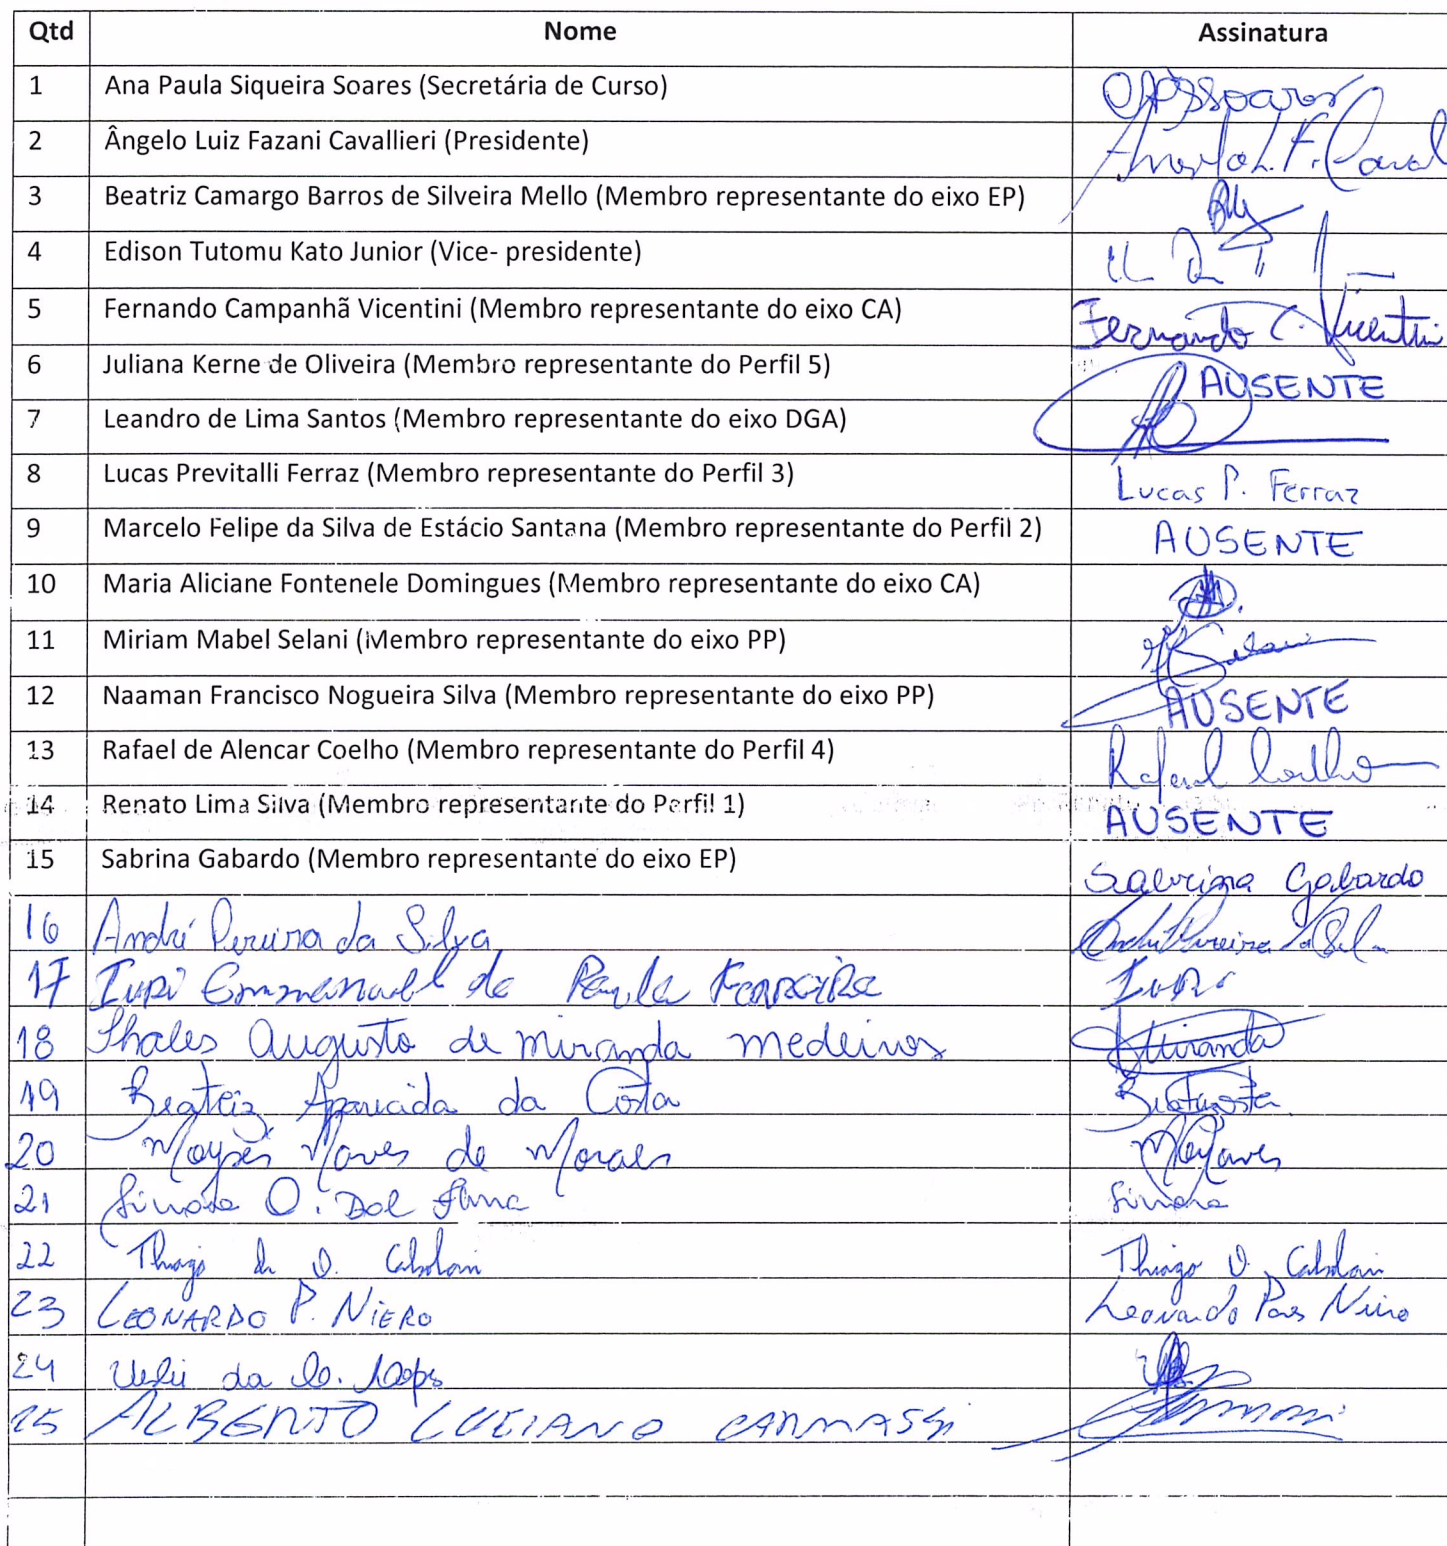 Qtd Nome Assinatura
1 Ana Paula Siqueira Soares (Secretária de Curso) APSSoares
2 Ângelo Luiz Fazani Cavallieri (Presidente) Angelo L. F. Caval
3 Beatriz Camargo Barros de Silveira Mello (Membro representante do eixo EP)
4 Edison Tutomu Kato Junior (Vice- presidente)
5 Fernando Campanhã Vicentini (Membro representante do eixo CA) Fernando C. Vicentini
6 Juliana Kerne de Oliveira (Membro representante do Perfil 5) AUSENTE
7 Leandro de Lima Santos (Membro representante do eixo DGA)
8 Lucas Previtalli Ferraz (Membro representante do Perfil 3) Lucas P. Ferraz
9 Marcelo Felipe da Silva de Estácio Santana (Membro representante do Perfil 2) AUSENTE
10 Maria Aliciane Fontenele Domingues (Membro representante do eixo CA)
11 Miriam Mabel Selani (Membro representante do eixo PP) Selani
12 Naaman Francisco Nogueira Silva (Membro representante do eixo PP) AUSENTE
13 Rafael de Alencar Coelho (Membro representante do Perfil 4) Rafael Coelho
14 Renato Lima Silva (Membro representante do Perfil 1) AUSENTE
15 Sabrina Gabardo (Membro representante do eixo EP) Sabrina Gabardo
16 André Pereira da Silva André Pereira da Silva
17 Iupi Emmanuel de Paula Ferreira Iupi
18 Thales Augusto de Miranda Medeiros Miranda
19 Beatriz Aparecida da Costa
20 Moyses Naves de Moraes MNaves
21 Simone O. Dol Simone
22 Thiago de O. Thiago O.
23 LEONARDO P. NIERO Leonardo Paes Niero
24 da
25 ALBERTO LUCIANO CARMASSI